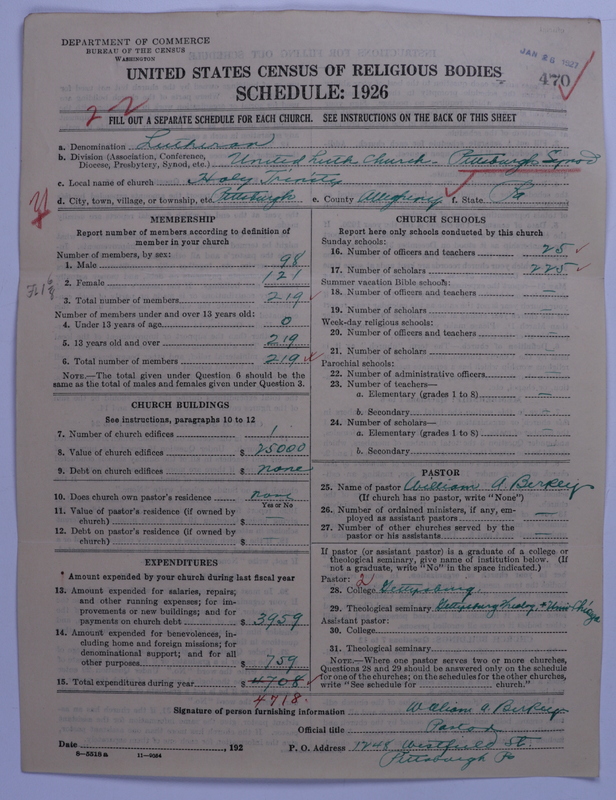 DEPARTMENT OF COMMERCE
BUREAU OF THE CENSUS
WASHINGTON
JAN 26 1927
470
UNITED STATES CENSUS OF RELIGIOUS BODIES
SCHEDULE: 1926
22
FILL OUT A SEPARATE SCHEDULE FOR EACH CHURCH. SEE INSTRUCTIONS ON THE BACK OF THIS SHEET
a. Denomination Lutheran
b. Division (Association, Conference, Diocese, Presbytery, Synod, etc.) United Luth Church - Pittsburgh Synod
c. Local name of church Holy Trinity
d. City, town, village, or township, etc. Pittsburgh e. County Allegheny f. State Pa
MEMBERSHIP
Report number of members according to definition of
member in your church
Number of members, by sex:
1. Male 98
2. Female 121
3. Total number of members 219
Number of members under and over 13 years old:
4. Under 13 years of age 0
5. 13 years old and over 219
6. Total number of members 219
NOTE.—The total given under Question 6 should be
same as the total of males and females given under Question 3.
CHURCH BUILDINGS
See instructions, paragraphs 10 to 12
7. Number of church edifices 1
8. Value of church edifices $ 25000
9. Debt on church edifices $ none
10. Does church own pastor's residence none
Yes or No
11. Value of pastor's residence (if owned by
church) $ —
12. Debt on pastor's residence (if owned by
church) $ —
EXPENDITURES
* Amount expended by your church during last fiscal year
13. Amount expended for salaries, repairs;
and other running expenses; for im-
provements or new buildings; and for
payments on church debt $ 3959
14. Amount expended for benevolences, in-
cluding home and foreign missions; for
denominational support; and for all
other purposes $ 759
15. Total expenditures during year $ 4708
4718.
CHURCH SCHOOLS
Report here only schools conducted by this church
Sunday schools:
16. Number of officers and teachers 25
17. Number of scholars 225
Summer vacation Bible schools:
18. Number of officers and teachers —
19. Number of scholars —
Week-day religious schools:
20. Number of officers and teachers —
21. Number of scholars —
Parochial schools:
22. Number of administrative officers —
23. Number of teachers—
a. Elementary (grades 1 to 8) —
b. Secondary —
24. Number of scholars—
a. Elementary (grades 1 to 8) —
b. Secondary —
PASTOR
25. Name of pastor William A. Berkey
(If church has no pastor, write "None")
26. Number of ordained ministers, if any, em-
ployed as assistant pastors —
27. Number of other churches served by the
pastor or his assistants —
If pastor (or assistant pastor) is a graduate of a college or
theological seminary, give name of institution below. (If
not a graduate, write "No" in the space indicated.)
Pastor: 2
28. College Gettysburg
29. Theological seminary Gettysburg Theolog. + Univ. Chicago
Assistant pastor:
30. College
31. Theological seminary
NOTE.—Where one pastor serves two or more churches,
Questions 28 and 29 should be answered only on the schedule
for one of the churches; on the schedules for the other churches,
write "See schedule for church."
Signature of person furnishing information William A. Berkey
Official title Pastor
Date , 192 P. O. Address 1248 Westfield St.
Pittsburgh Pa
8—5518a 11—9054